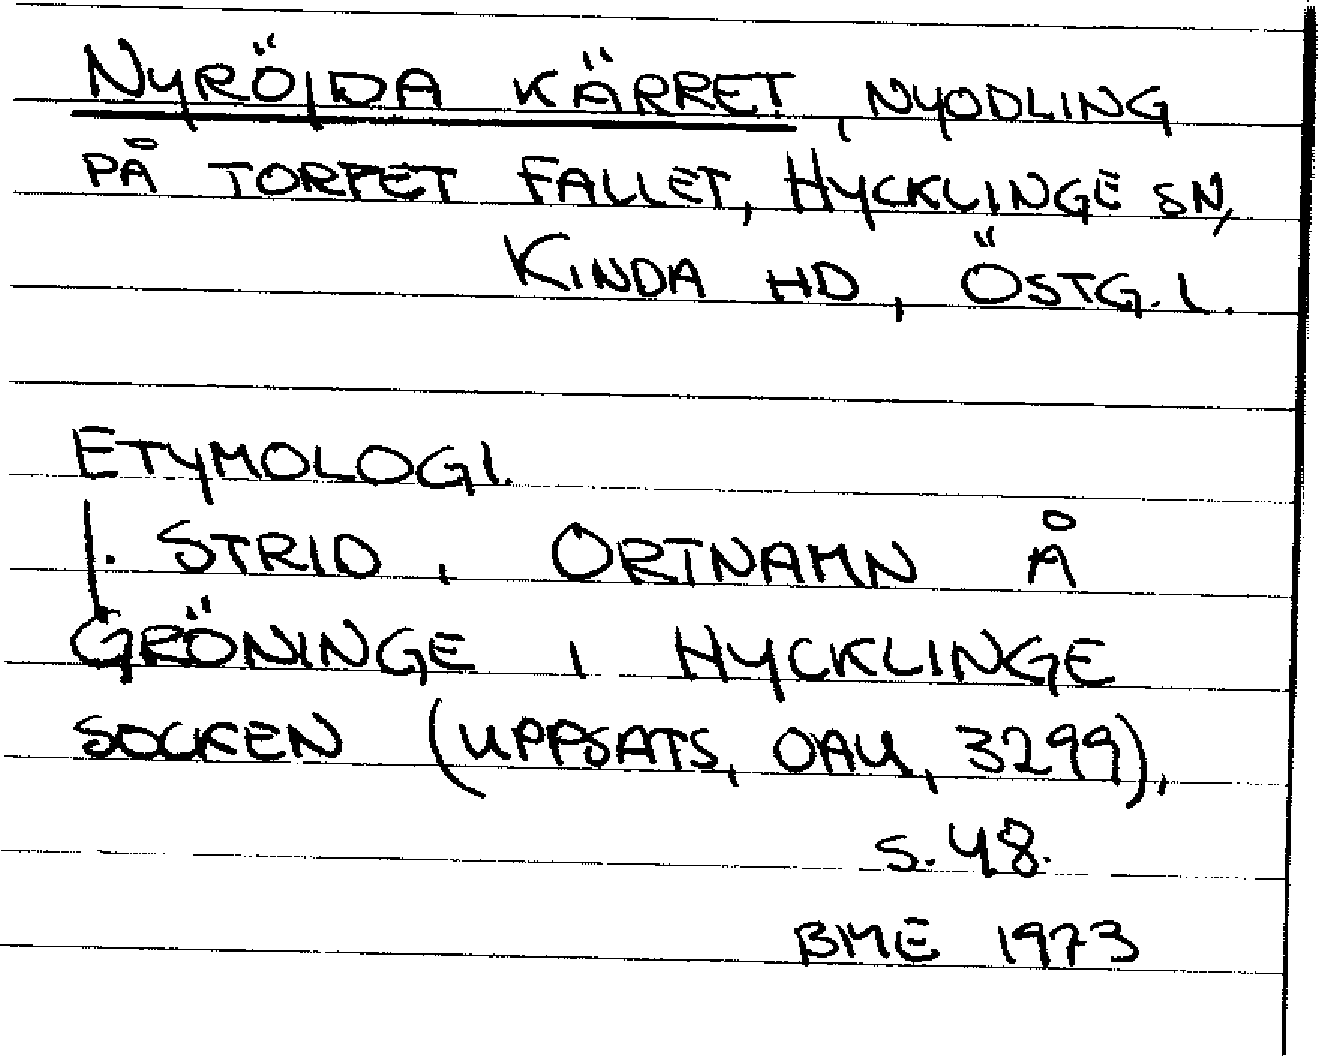 NYRÖJDA KÄRRET, NYODLING
PÅ TORPET FALLET, HYCKLINGE SN,
KINDA HD, ÖSTG. L.
ETYMOLOGI.
I. STRID, ORTNAMN Å
GRÖNINGE I HYCKLINGE
SOCKEN (UPPSATS, OAU, 3299),
S. 48.
BME 1973